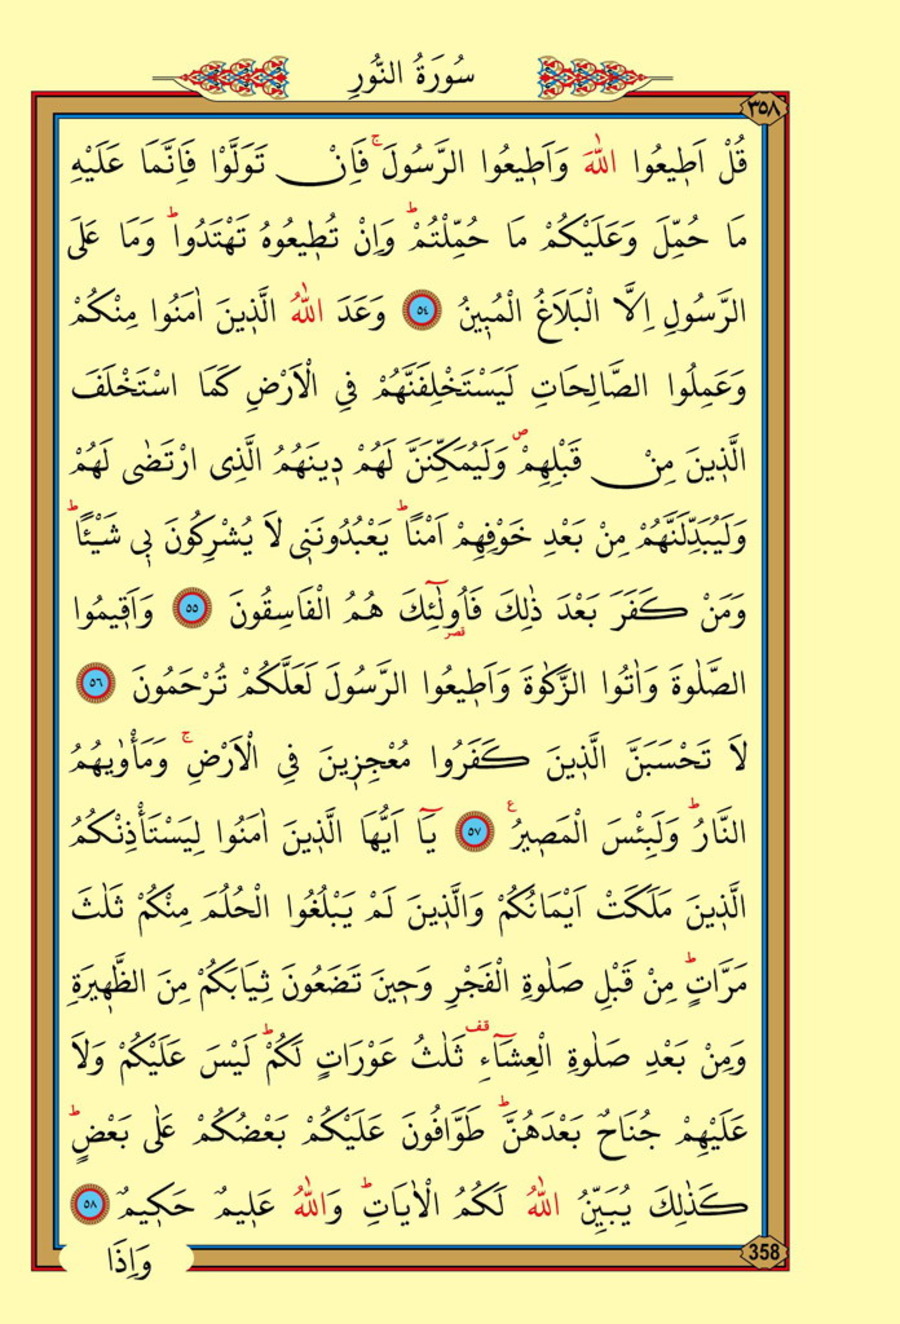 سُورَةُ النُّورِ
٣٥٨
قُلْ اَطٖيعُوا اللّٰهَ وَاَطٖيعُوا الرَّسُولَۚ فَاِنْ تَوَلَّوْا فَاِنَّمَا عَلَيْهِ
مَا حُمِّلَ وَعَلَيْكُمْ مَا حُمِّلْتُمْؕ وَاِنْ تُطٖيعُوهُ تَهْتَدُواؕ وَمَا عَلَى
الرَّسُولِ اِلَّا الْبَلَاغُ الْمُبٖينُ ٥٤ وَعَدَ اللّٰهُ الَّذٖينَ اٰمَنُوا مِنْكُمْ
وَعَمِلُوا الصَّالِحَاتِ لَيَسْتَخْلِفَنَّهُمْ فِي الْاَرْضِ كَمَا اسْتَخْلَفَ
الَّذٖينَ مِنْ قَبْلِهِمْࣕ وَلَيُمَكِّنَنَّ لَهُمْ دٖينَهُمُ الَّذِى ارْتَضٰى لَهُمْ
وَلَيُبَدِّلَنَّهُمْ مِنْ بَعْدِ خَوْفِهِمْ اَمْنًاؕ يَعْبُدُونَنٖى لَا يُشْرِكُونَ بٖى شَيْـًٔاؕ
وَمَنْ كَفَرَ بَعْدَ ذٰلِكَ فَاُو۬لٰٓئِكَ هُمُ الْفَاسِقُونَ ٥٥ وَاَقٖيمُوا
الصَّلٰوةَ وَاٰتُوا الزَّكٰوةَ وَاَطٖيعُوا الرَّسُولَ لَعَلَّكُمْ تُرْحَمُونَ ٥٦
لَا تَحْسَبَنَّ الَّذٖينَ كَفَرُوا مُعْجِزٖينَ فِي الْاَرْضِۚ وَمَأْوٰيهُمُ
النَّارُؕ وَلَبِئْسَ الْمَصٖيرُࣖ ٥٧ يَٓا اَيُّهَا الَّذٖينَ اٰمَنُوا لِيَسْتَأْذِنْكُمُ
الَّذٖينَ مَلَكَتْ اَيْمَانُكُمْ وَالَّذٖينَ لَمْ يَبْلُغُوا الْحُلُمَ مِنْكُمْ ثَلٰثَ
مَرَّاتٍؕ مِنْ قَبْلِ صَلٰوةِ الْفَجْرِ وَحٖينَ تَضَعُونَ ثِيَابَكُمْ مِنَ الظَّهٖيرَةِ
وَمِنْ بَعْدِ صَلٰوةِ الْعِشَٓاءِࣞ ثَلٰثُ عَوْرَاتٍ لَكُمْؕ لَيْسَ عَلَيْكُمْ وَلَا
عَلَيْهِمْ جُنَاحٌ بَعْدَهُنَّؕ طَوَّافُونَ عَلَيْكُمْ بَعْضُكُمْ عَلٰى بَعْضٍؕ
كَذٰلِكَ يُبَيِّنُ اللّٰهُ لَكُمُ الْاٰيَاتِؕ وَاللّٰهُ عَلٖيمٌ حَكٖيمٌ ٥٨
358
وَاِذَا